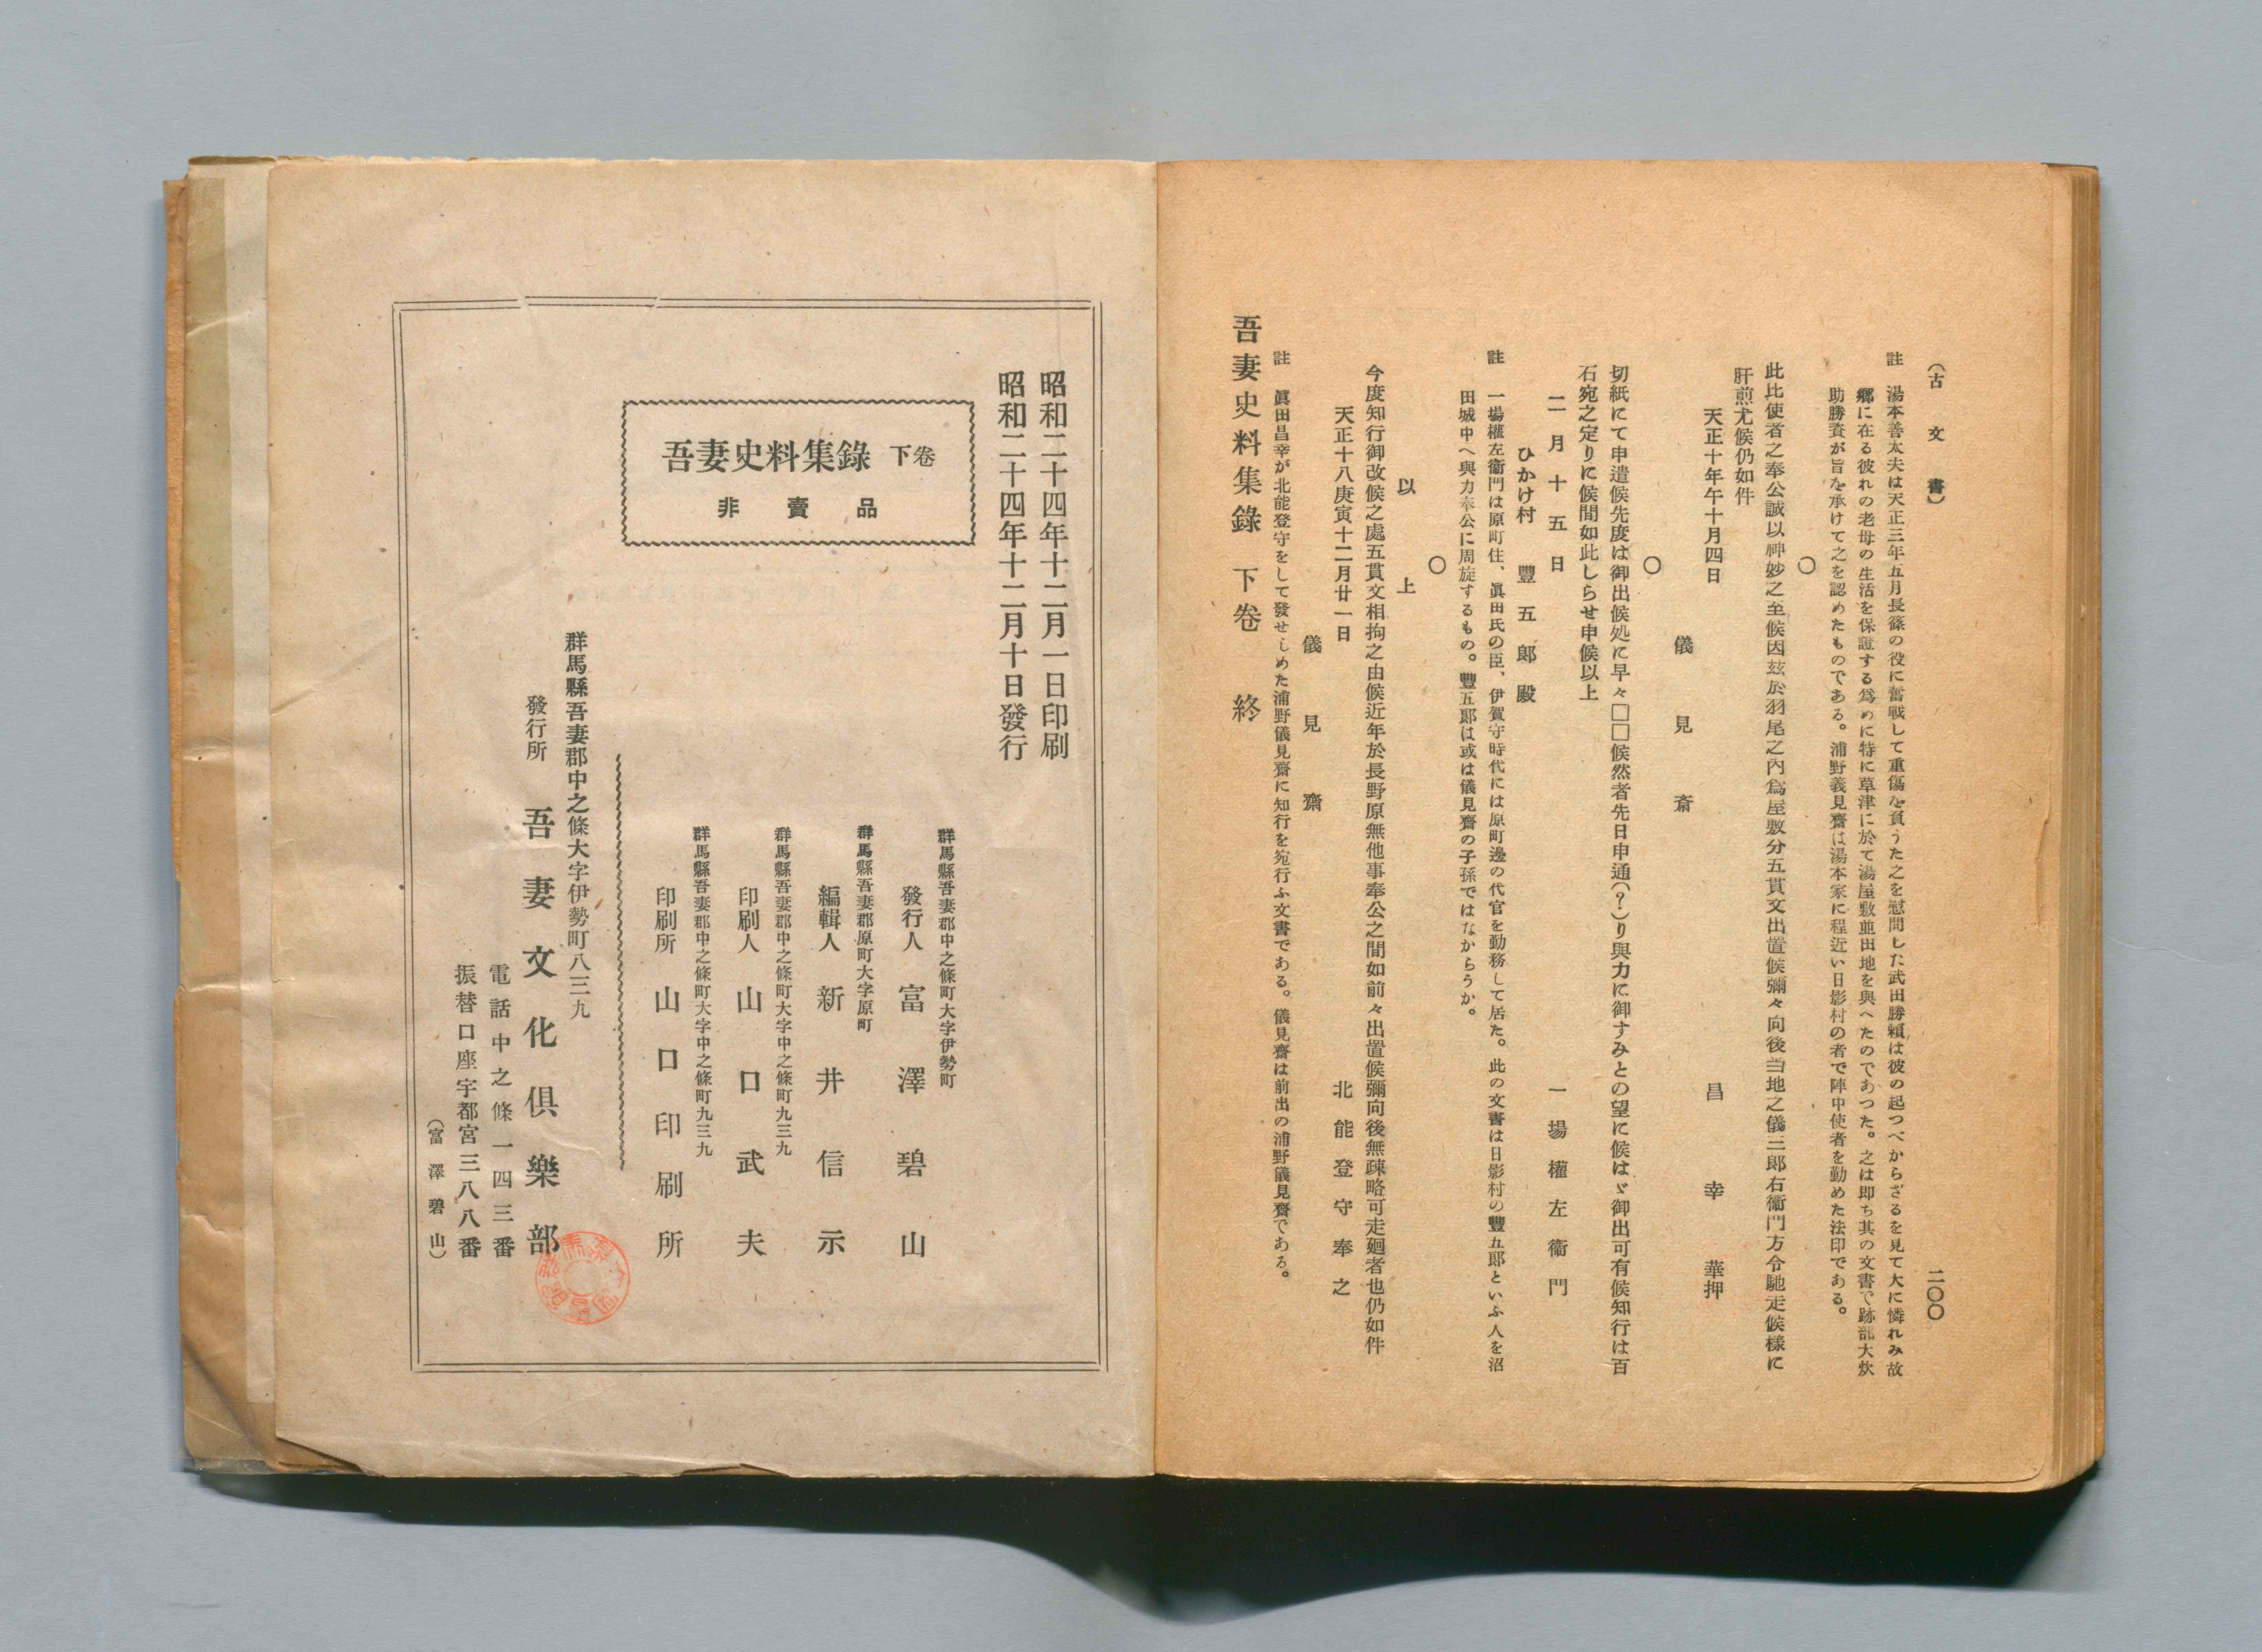 （古文書）
二〇〇
註　湯本善太夫は天正三年五月長篠の役に奮戰して重傷を負うた之を慰問した武田勝頼は彼の起つべからざるを見て大に憐れみ故
郷に在る彼れの老母の生活を保證する爲めに特に草津に於て湯屋敷並田地を與へたのであつた。之は即ち其の文書で跡部大炊
助勝資が旨を承けて之を認めたものである。浦野義見齋は湯本家に程近い日影村の者で陣中使者を勤めた法印である。
〇
此比使者之奉公誠以神妙之至候因玆於羽尾之内爲屋敷分五貫文出置候彌々向後当地之儀三郎右衞門方令馳走候樣に
肝煎尤候仍如件
天正十年午十月四日　昌幸　華押
儀見斎
〇
切紙にて申遣候先度は御出候処に早々□□候然者先日申通（？）り與力に御すみとの望に候はゞ御出可有候知行は百
石宛之定りに候間如此しらせ申候以上
二月十五日　一場權左衞門
ひかけ村　豐五郎殿
註　一場權左衞門は原町住、眞田氏の臣、伊賀守時代には原町邊の代官を勤務して居た。此の文書は日影村の豐五郎といふ人を沼
田城中へ與力奉公に周旋するもの。豐五郎は或は儀見齋の子孫ではなからうか。
〇
以上
今度知行御改候之處五貫文相拘之由候近年於長野原無他事奉公之間如前々出置候彌向後無疎略可走廻者也仍如件
天正十八庚寅十二月廿一日　北能登守奉之
儀見齋
註　眞田昌幸が北能登守をして發せしめた浦野儀見齋に知行を宛行ふ文書である。儀見齋は前出の浦野儀見齋である。
吾妻史料集錄　下卷　終
昭和二十四年十二月一日印刷
昭和二十四年十二月十日發行
吾妻史料集錄　下卷
非賣品
群馬縣吾妻郡中之條町大字伊勢町
發行人　富澤碧山
群馬縣吾妻郡原町大字原町
編輯人　新井信示
群馬縣吾妻郡中之條町大字中之條町九三九
印刷人　山口武夫
群馬縣吾妻郡中之條町大字中之條町九三九
印刷所　山口印刷所
群馬縣吾妻郡中之條大字伊勢町八三九
發行所　吾妻文化倶樂部
電話中之條一四三番
振替口座宇都宮三八八番
（富澤碧山）